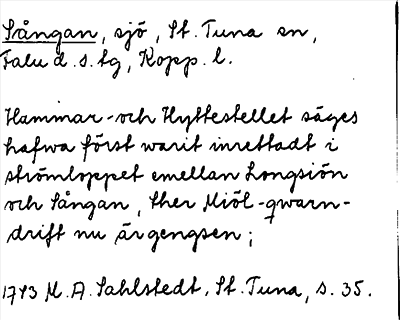 Sången, sjö, St. Tuna sn,
Falu d. s. tg, Kopp. l.
Hammar-och Hyttestellet säges
hafwa först warit inrettadt i
strömloppet emellan Longsiön
och Sången, ther Miöl-qwarn-
drift nu är gengsen;
1743 M. A. Sahlstedt, St. Tuna, s. 35.